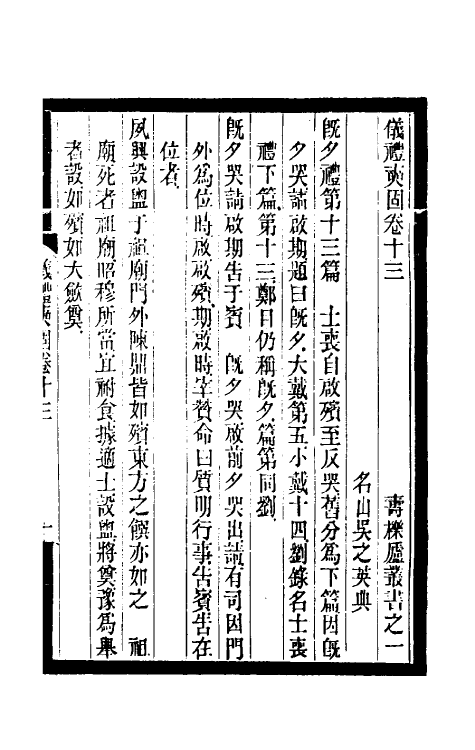 儀禮奭固卷十三　壽櫟廬叢書之一
名山吳之英典
旣夕禮第十三篇　士喪自啟殯至反哭舊分爲下篇因旣
夕哭請啟期題曰旣夕大戴第五小戴十四劉錄名士喪
禮下篇第十三鄭目仍稱旣夕篇第同劉
旣夕哭請啟期告于賓　旣夕哭啟前夕哭出請有司因門
外爲位時啟啟殯期啟時宰贊命曰質明行事告賓告在
位者
夙興設盥于祖廟門外陳鼎皆如殯東方之饌亦如之　祖
廟死者祖廟昭穆所當宜祔食據適士設盥將奠豫爲舉
者設如殯如大斂奠
儀禮奭固卷十三　一